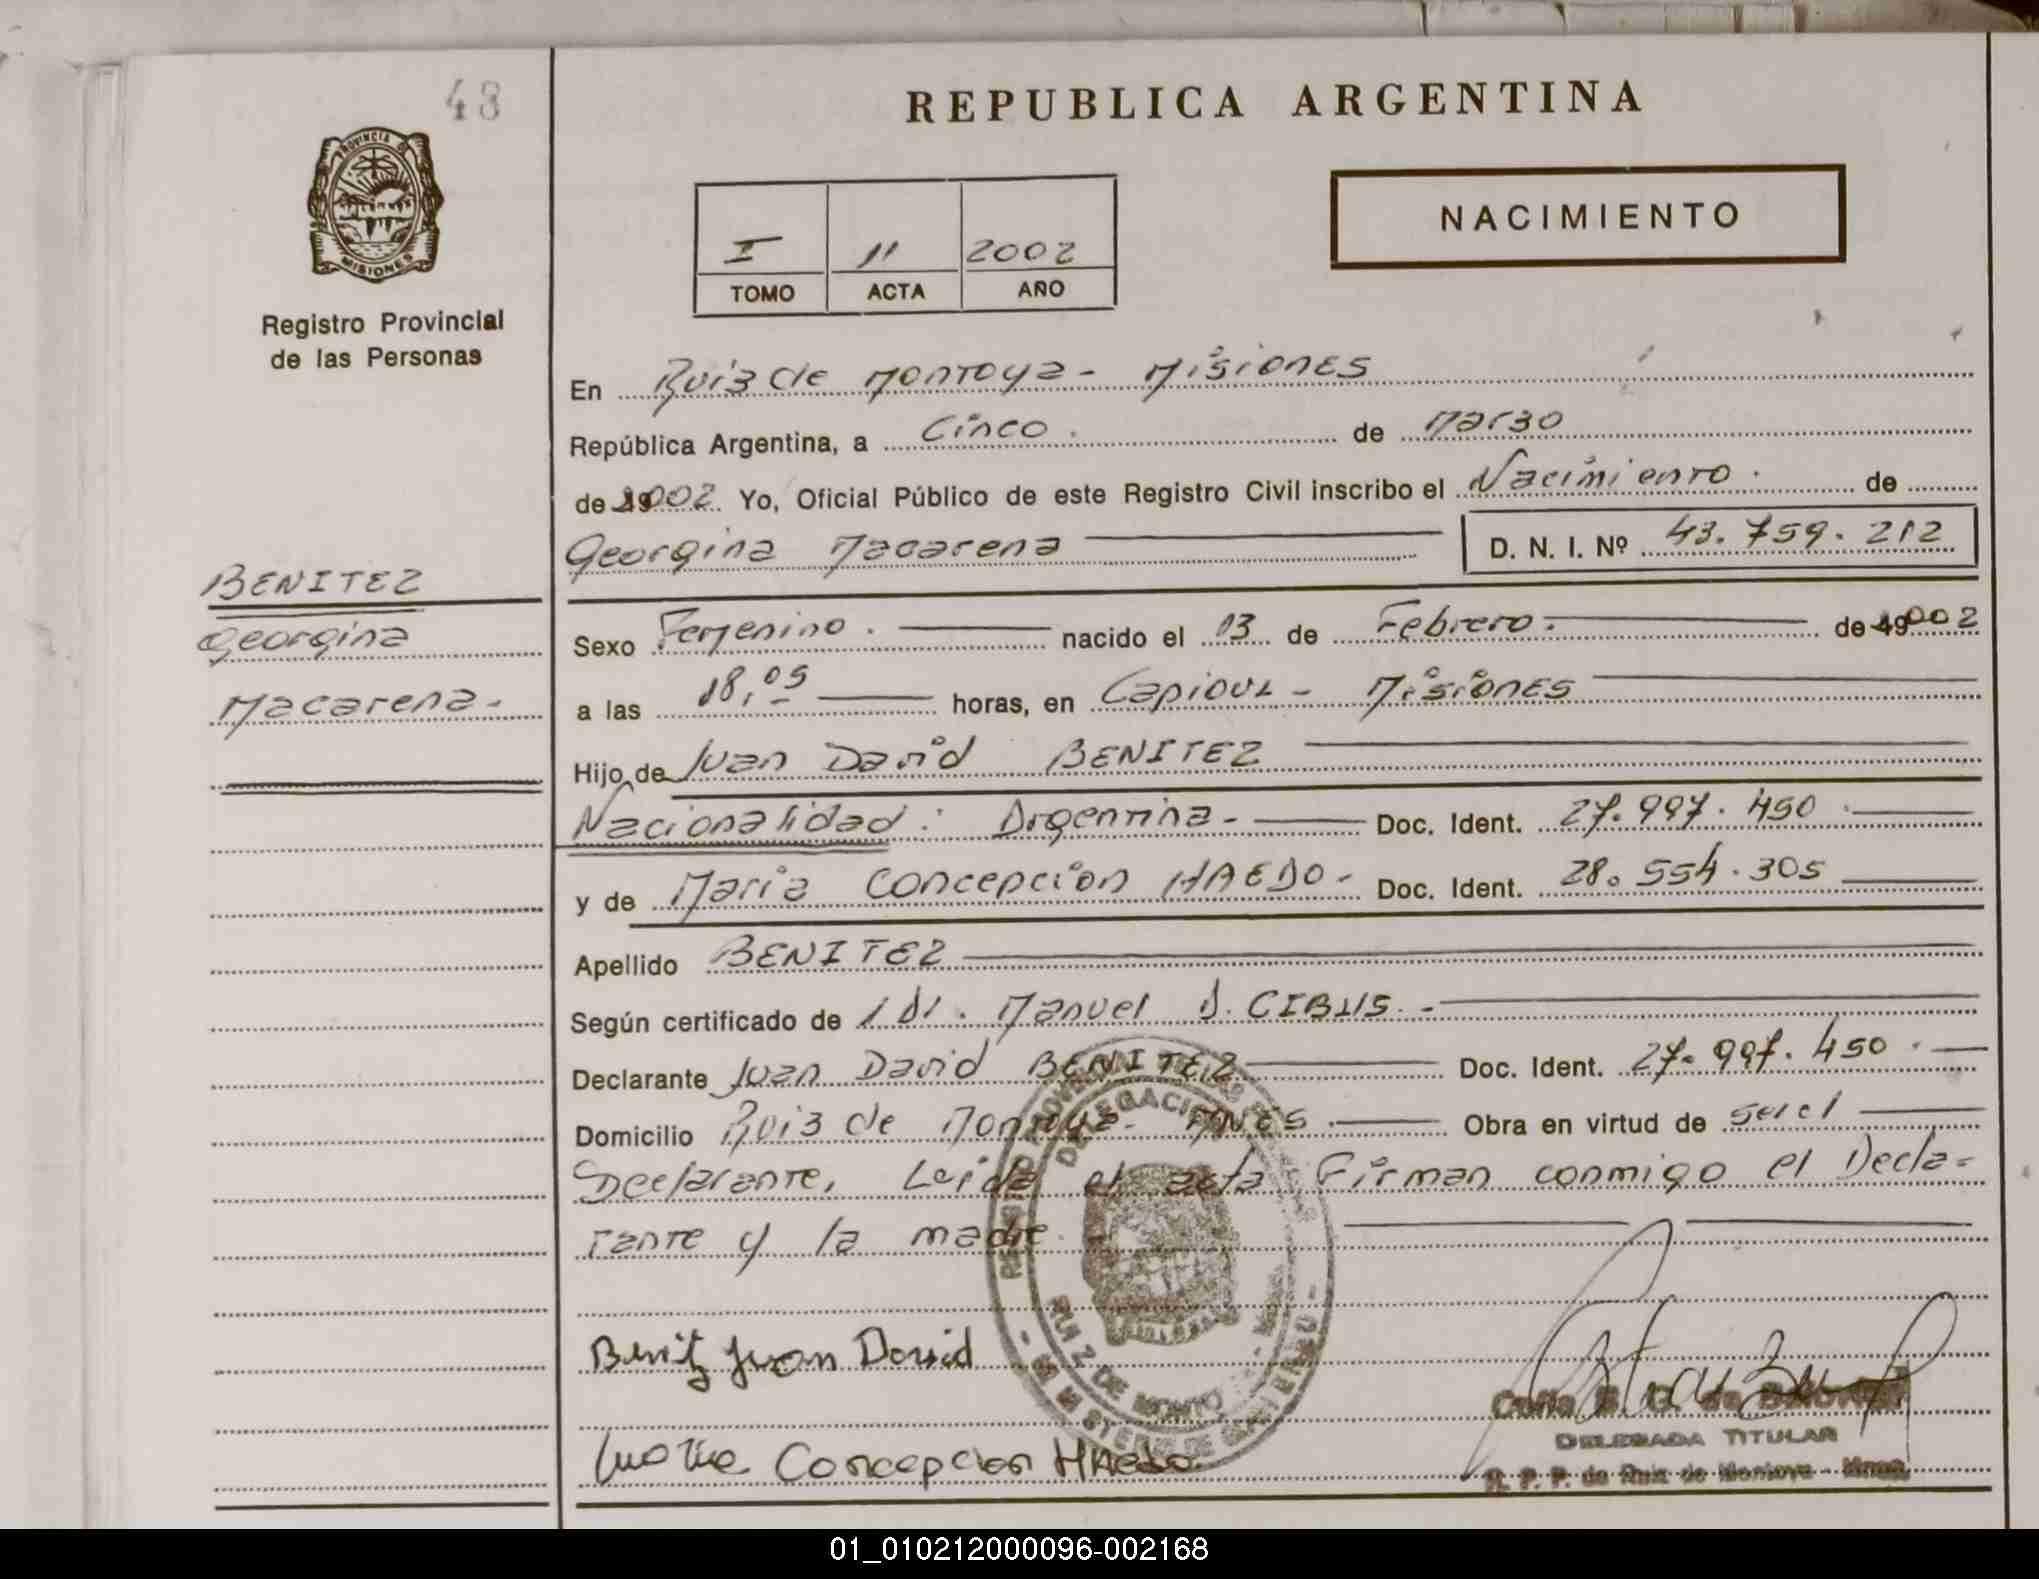 48
REPUBLICA ARGENTINA
PROVINCIA D
MISIONES
Registro Provincial
de las Personas
I 11 2002
TOMO ACTA AÑO
NACIMIENTO
En Ruiz de Montoya - Misiones
República Argentina, a Cinco. de Marzo
de 2002 Yo, Oficial Público de este Registro Civil inscribo el Nacimiento. de
Georgina Macarena D. N. I. Nº 43.759.212
BENITEZ
Georgina
Macarena.-
Sexo Femenino. nacido el 13 de Febrero. de 2002
a las 18,05 horas, en Capioví - Misiones
Hijo de Juan David BENITEZ
Nacionalidad: Argentina.- Doc. Ident. 27.997.450.
y de María Concepción HAEDO.- Doc. Ident. 28.554.305
Apellido BENITEZ
Según certificado de Manuel CIBILS.-
Declarante Juan David BENITEZ Doc. Ident. 27.997.450.
Domicilio Ruiz de Montoya- MNES. Obra en virtud de ser el
Declarante, Leida el acta Firman conmigo el Decla-
rante y la madre.
DELEGACION
RUIZ DE MONTOYA
MINISTERIO DE GOBIERNO
Benitz Juan David
DELEGADA TITULAR
R. P. P. de Ruiz de Montoya - Mnes.
Maria Concepcion HAedo
01_010212000096-002168